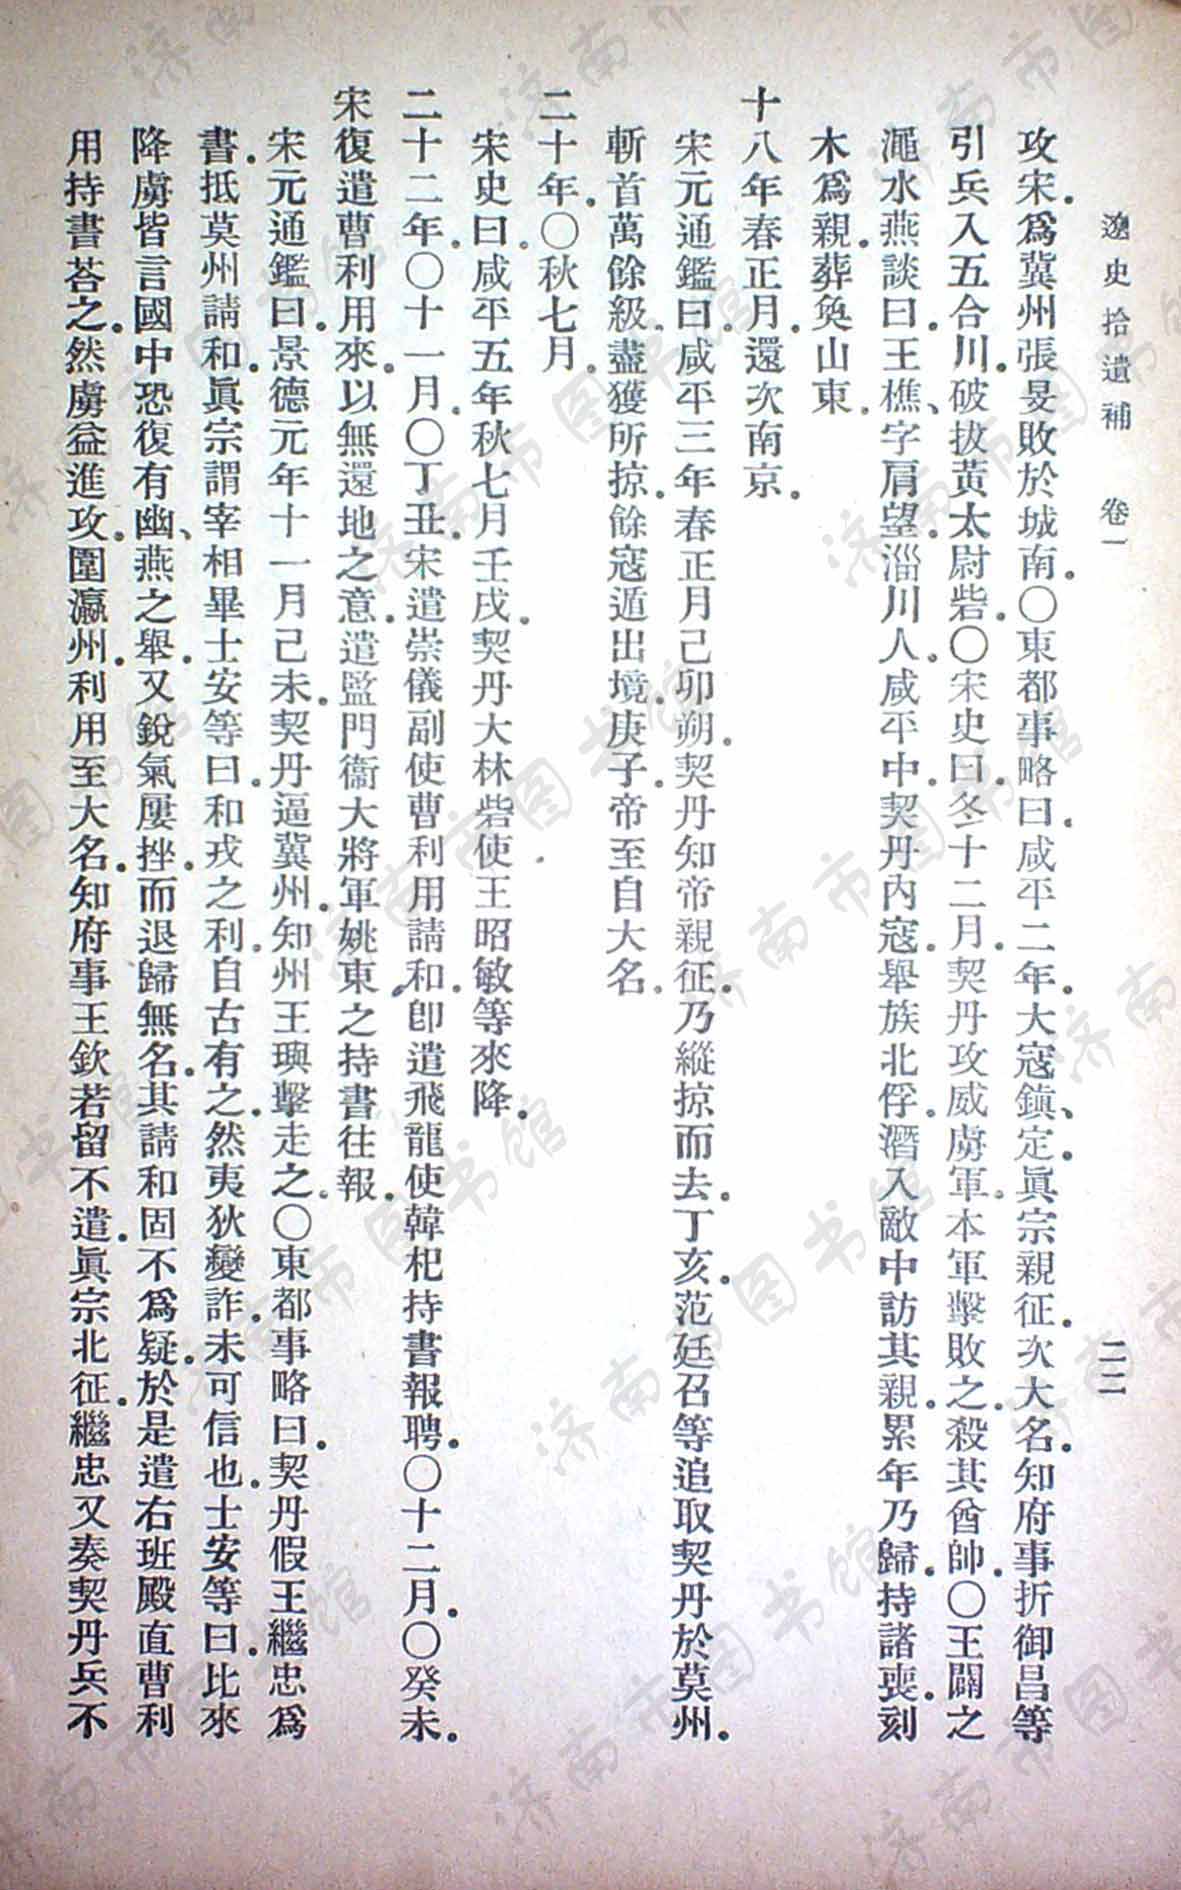 遼史拾遺補　卷一　二二
攻宋。爲冀州張旻敗於城南。〇東都事略曰。咸平二年。大寇鎮、定。眞宗親征。次大名。知府事折御昌等
引兵入五合川。破拔黃太尉砦。〇宋史曰。冬十二月。契丹攻威虜軍。本軍擊敗之。殺其酋帥。〇王闢之
澠水燕談曰。王樵、字肩望。淄川人。咸平中。契丹內寇。舉族北俘。潛入敵中訪其親。累年乃歸。持諸喪。刻
木爲親。葬奐山東。
十八年春正月。還次南京。
宋元通鑑曰。咸平三年春正月己卯朔。契丹知帝親征。乃縱掠而去。丁亥。范廷召等追取契丹於莫州。
斬首萬餘級。盡獲所掠。餘寇遁出境。庚子。帝至自大名。
二十年。〇秋七月。
宋史曰。咸平五年秋七月壬戌。契丹大林砦使王昭敏等來降。
二十二年。〇十一月。〇丁丑。宋遣崇儀副使曹利用請和。卽遣飛龍使韓杞持書報聘。〇十二月。〇癸未。
宋復遣曹利用來。以無還地之意。遣監門衞大將軍姚東之持書往報。
宋元通鑑曰。景德元年十一月己未。契丹逼冀州。知州王璵擊走之。〇東都事略曰。契丹假王繼忠爲
書。抵莫州請和。眞宗謂宰相畢士安等曰。和戎之利。自古有之。然夷狄變詐。未可信也。士安等曰。比來
降虜皆言國中恐復有幽、燕之舉。又銳氣屢挫。而退歸無名。其請和固不爲疑。於是遣右班殿直曹利
用持書荅之。然虜益進攻。圍瀛州。利用至大名。知府事王欽若留不遣。眞宗北征。繼忠又奏契丹兵不
济南市图书馆